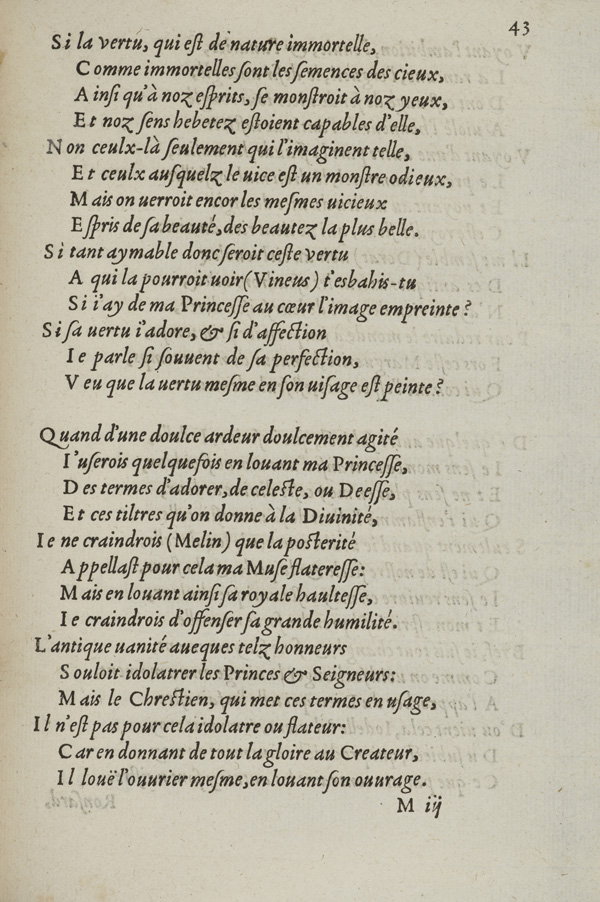 43
Si la vertu, qui est de nature immortelle,
Comme immortelles sont les semences des cieux,
Ainsi qu'à noz esprits, se monstroit à noz yeux,
Et noz sens hebetez estoient capables d'elle,
Non ceulx-là seulement qui l'imaginent telle,
Et ceulx ausquelz le uice est un monstre odieux,
Mais on uerroit encor les mesmes uicieux
Espris de sa beauté, des beautez la plus belle.
Si tant aymable donc seroit ceste vertu
A qui la pourroit uoir (Vineus) t'esbahis-tu
Si i'ay de ma Princesse au cœur l'image empreinte?
Si sa uertu i'adore, & si d'affection
Ie parle si souuent de sa perfection,
Veu que la uertu mesme en son uisage est peinte?
Quand d'une doulce ardeur doulcement agité
I'userois quelquefois en louant ma Princesse,
Des termes d'adorer, de celeste, ou Deesse,
Et ces tiltres qu'on donne à la Diuinité,
Ie ne craindrois (Melin) que la posterité
Appellast pour cela ma Muse flateresse:
Mais en louant ainsi sa royale haultesse,
Ie craindrois d'offenser sa grande humilité.
L'antique uanité aueques telz honneurs
Souloit idolatrer les Princes & Seigneurs:
Mais le Chrestien, qui met ces termes en usage,
Il n'est pas pour cela idolatre ou flateur:
Car en donnant de tout la gloire au Createur,
Il louë l'ouurier mesme, en louant son ouurage.
M iij